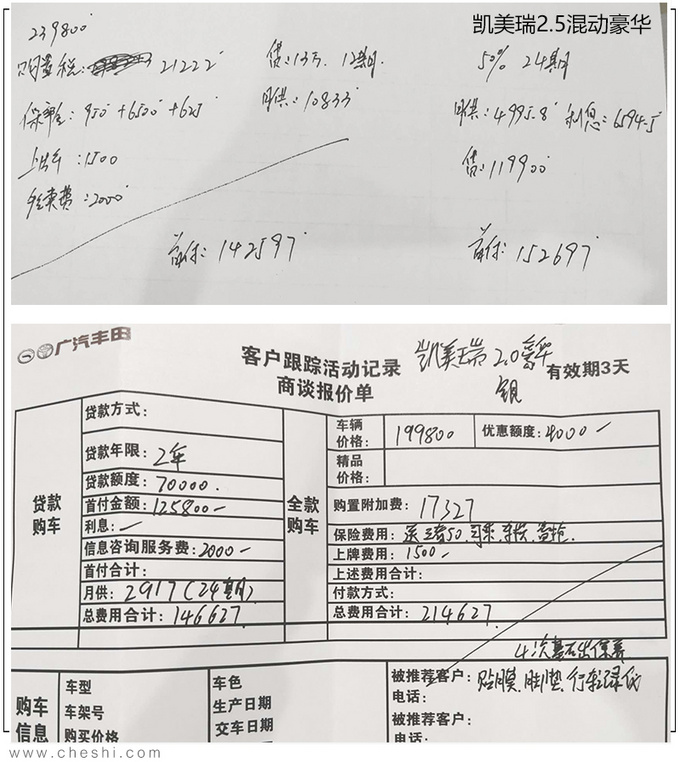 凯美瑞2.5混动豪华
239800
购置税: 21222
保险: 950 + 6500 + 625
上牌: 1500
手续费: 2000
贷: 13万 12期
月供: 10833
50% 24期
月供: 4995.8 利息: 6594.5
贷: 119900
首付: 142597
首付: 152697
广汽丰田
客户跟踪活动记录
商谈报价单
凯美瑞 2.0豪华
有效期3天
贷款购车
贷款方式:
贷款年限: 2年
贷款额度: 70000.
首付金额: 125800-
利息: -
信息咨询服务费: 2000-
首付合计:
月供: 2917(24期)
总费用合计: 146627
全款购车
车辆价格: 199800
优惠额度: 4000-
精品价格:
购置附加费: 17327
保险费用:
上牌费用: 1500-
上述费用合计:
付款方式:
总费用合计: 214627
4次基础保养
购车信息
车型
车架号
购买价格
车色
生产日期
交车日期
被推荐客户: 贴膜、脚垫、行车记录仪
电话:
被推荐客户:
电话:
www.cheshi.com